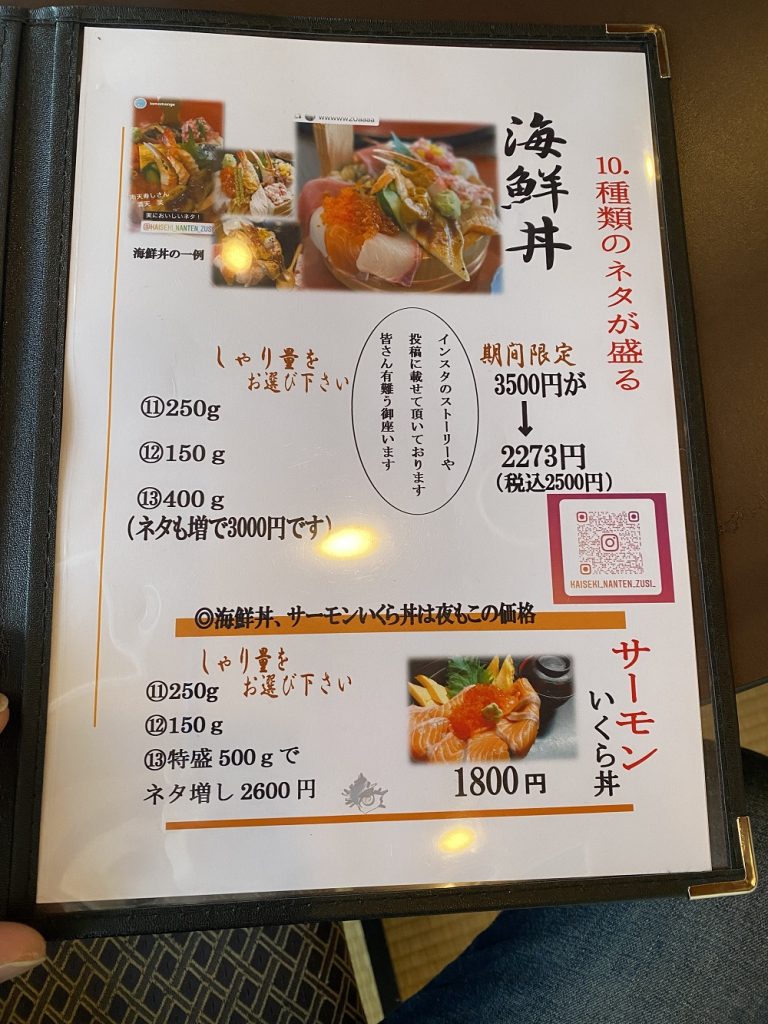 10.種類のネタが盛る
海鮮丼
wwwww20aaaa
南天寿しさん
満天 笑
実においしいネタ！
@KAISEKI_NANTEN_ZUSI
海鮮丼の一例
期間限定
3500円が
↓
2273円
(税込2500円)
インスタのストーリーや
投稿に載せて頂いております
皆さん有難う御座います
しゃり量を
お選び下さい
⑪250g
⑫150g
⑬400g
(ネタも増で3000円です)
KAISEKI_NANTEN_ZUSI_
◎海鮮丼、サーモンいくら丼は夜もこの価格
サーモン
いくら丼
1800円
しゃり量を
お選び下さい
⑪250g
⑫150g
⑬特盛500gで
ネタ増し2600円